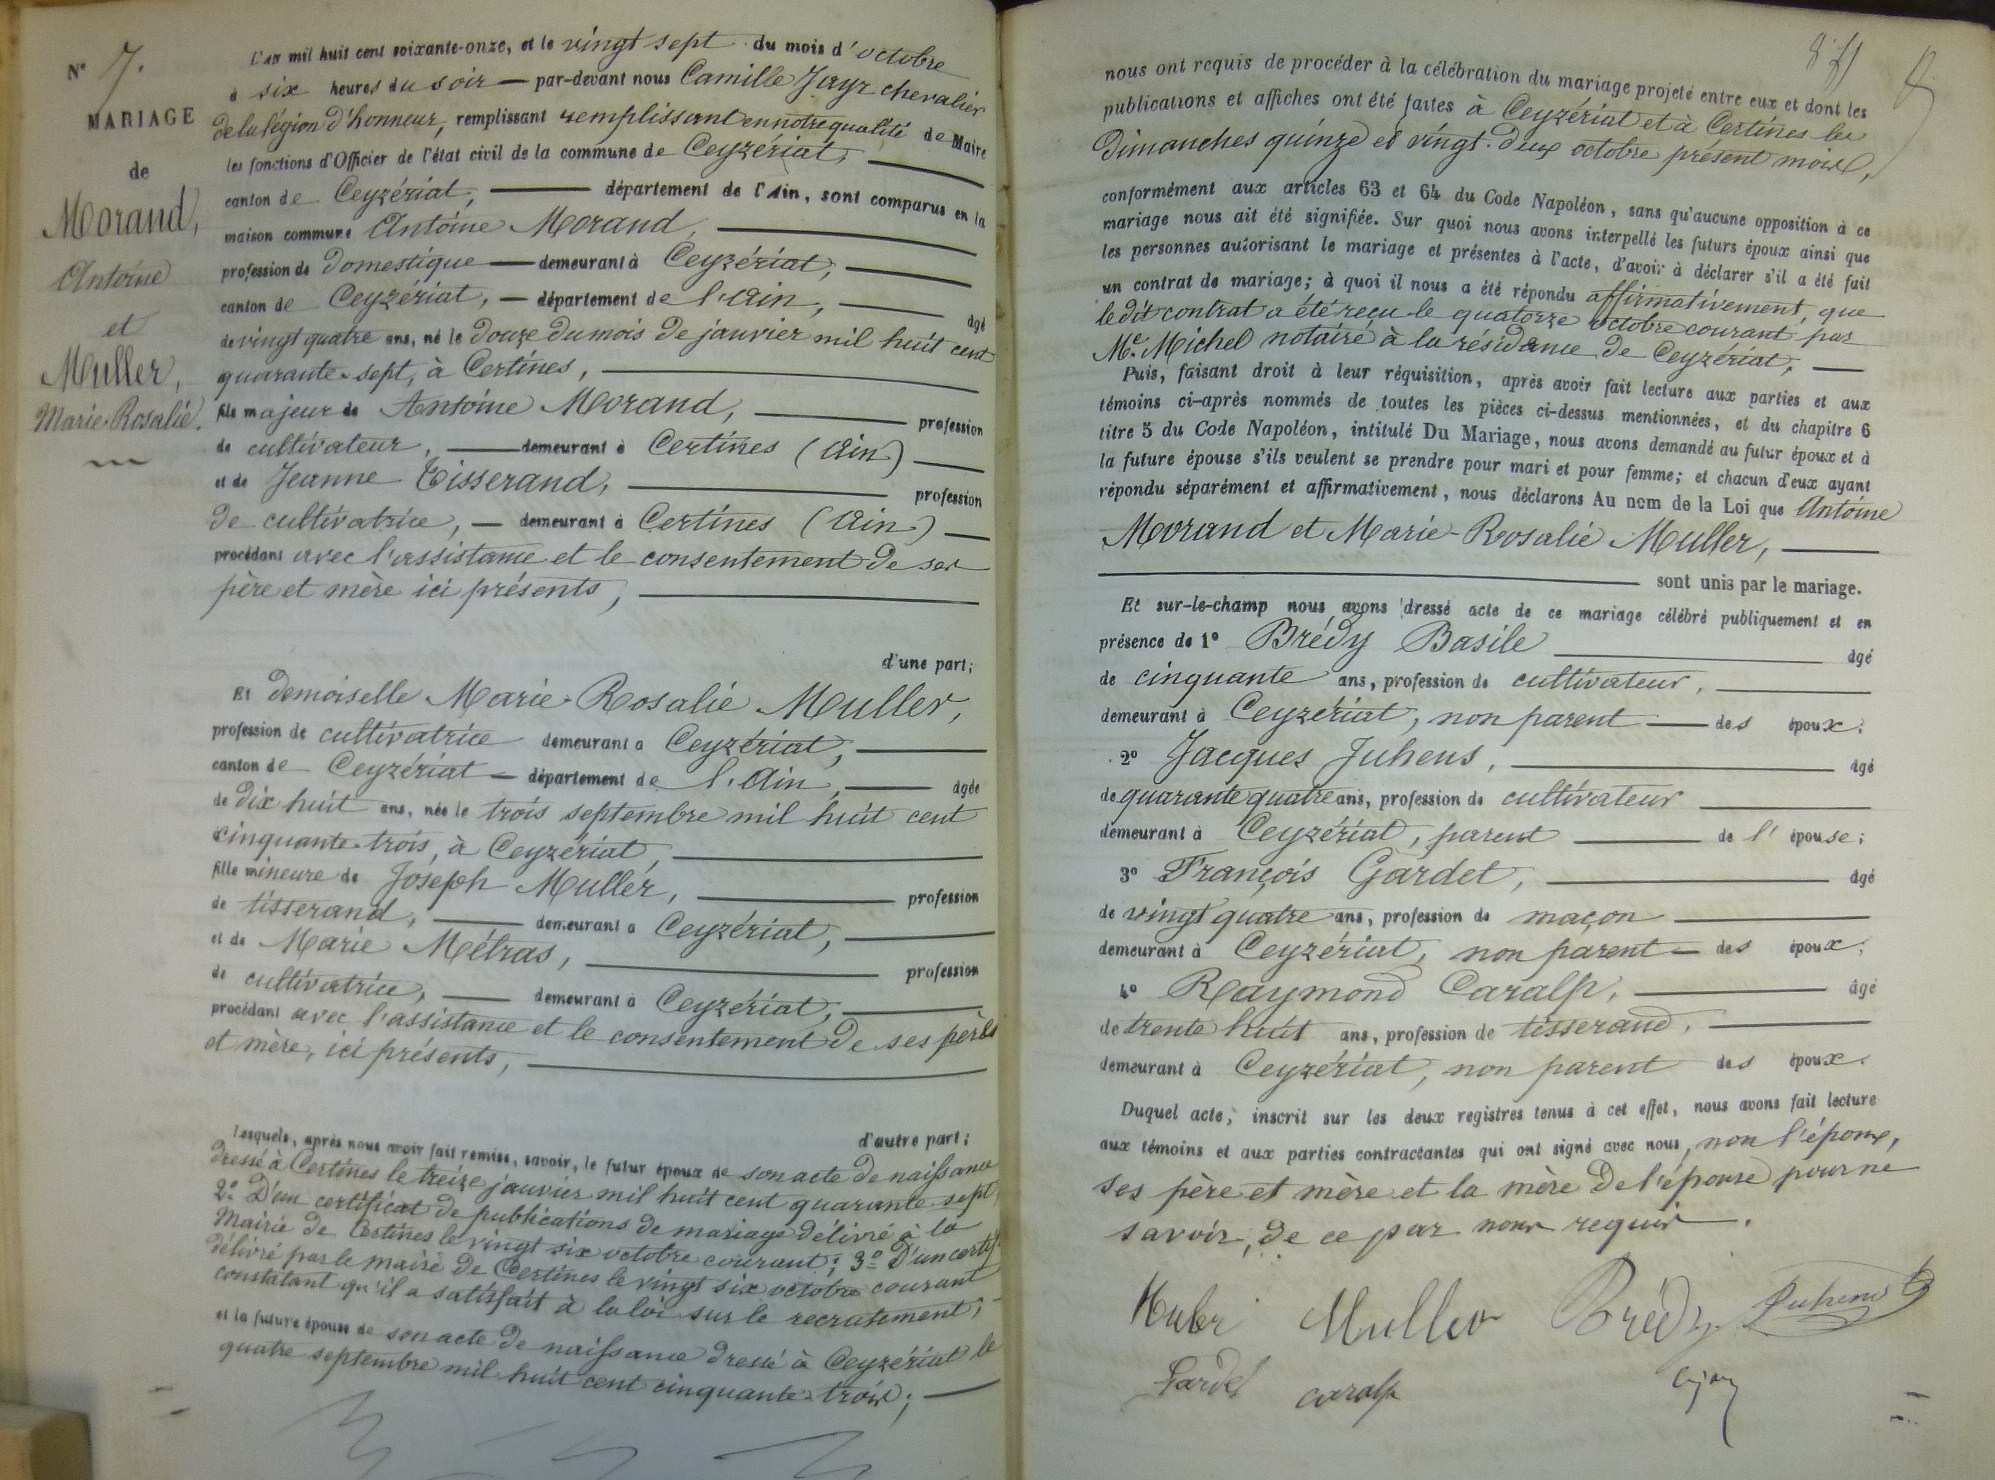 N° 7.
MARIAGE
de
Morand,
Antoine
et
Muller,
Marie-Rosalie.
L'an mil huit cent soixante-onze, et le vingt sept du mois d'octobre
à six heures du soir — par-devant nous Camille Jayr chevalier
de la légion d'honneur, remplissant remplissant en notre qualité de Maire
les fonctions d'Officier de l'état civil de la commune de Ceyzériat,
canton de Ceyzériat, — département de l'Ain, sont comparus en la
maison commune Antoine Morand,
profession de domestique — demeurant à Ceyzériat,
canton de Ceyzériat, — département de l'Ain, — âgé
de vingt quatre ans, né le douze du mois de janvier mil huit cent
quarante-sept, à Certines,
fils majeur de Antoine Morand, — profession
de cultivateur, — demeurant à Certines (Ain)
et de Jeanne Tisserand, — profession
de cultivatrice, — demeurant à Certines (Ain)
procédant avec l'assistance et le consentement de ses
père et mère ici présents,
d'une part;
Et demoiselle Marie-Rosalie Muller,
profession de cultivatrice demeurant à Ceyzériat,
canton de Ceyzériat — département de l'Ain, — âgée
de dix huit ans, née le trois septembre mil huit cent
cinquante-trois, à Ceyzériat,
fille mineure de Joseph Muller, — profession
de tisserand, — demeurant à Ceyzériat,
et de Marie Métras, — profession
de cultivatrice, — demeurant à Ceyzériat,
procédant avec l'assistance et le consentement de ses pères
et mère, ici présents,
d'autre part;
Lesquels, après nous avoir fait remise, savoir, le futur époux de son acte de naissance
dressé à Certines le treize janvier mil huit cent quarante-sept,
2° D'un certificat de publications de mariage délivré à la
Mairie de Certines le vingt six octobre courant; 3° D'un certif.
délivré par le maire de Certines le vingt six octobre courant
constatant qu'il a satisfait à la loi sur le recrutement;
et la future épouse de son acte de naissance dressé à Ceyzériat le
quatre septembre mil huit cent cinquante-trois;
nous ont requis de procéder à la célébration du mariage projeté entre eux et dont les
publications et affiches ont été faites à Ceyzériat et à Certines les
Dimanches quinze et vingt-deux octobre présent mois,
conformément aux articles 63 et 64 du Code Napoléon, sans qu'aucune opposition à ce
mariage nous ait été signifiée. Sur quoi nous avons interpellé les futurs époux ainsi que
les personnes autorisant le mariage et présentes à l'acte, d'avoir à déclarer s'il a été fait
un contrat de mariage; à quoi il nous a été répondu affirmativement, que
le dit contrat a été reçu le quatorze octobre courant par
Me. Michel notaire à la résidence de Ceyzériat,
Puis, faisant droit à leur réquisition, après avoir fait lecture aux parties et aux
témoins ci-après nommés de toutes les pièces ci-dessus mentionnées, et du chapitre 6
titre 5 du Code Napoléon, intitulé Du Mariage, nous avons demandé au futur époux et à
la future épouse s'ils veulent se prendre pour mari et pour femme; et chacun d'eux ayant
répondu séparément et affirmativement, nous déclarons Au nom de la Loi que Antoine
Morand et Marie-Rosalie Muller,
sont unis par le mariage.
Et sur-le-champ nous avons dressé acte de ce mariage célébré publiquement et en
présence de 1° Brédy Basile — âgé
de cinquante ans, profession de cultivateur,
demeurant à Ceyzériat, non parent — des époux.
2° Jacques Juhens, — âgé
de quarante quatre ans, profession de cultivateur
demeurant à Ceyzériat, parent — de l'épouse;
3° François Gardet, — âgé
de vingt quatre ans, profession de maçon
demeurant à Ceyzériat, non parent — des époux;
4° Raymond Caralp, — âgé
de trente huit ans, profession de tisserand,
demeurant à Ceyzériat, non parent des époux.
Duquel acte, inscrit sur les deux registres tenus à cet effet, nous avons fait lecture
aux témoins et aux parties contractantes qui ont signé avec nous, non l'époux,
ses père et mère et la mère de l'épouse pour ne
savoir, de ce par nous requis.
Muller Brédy Juhens
Gardet caralp